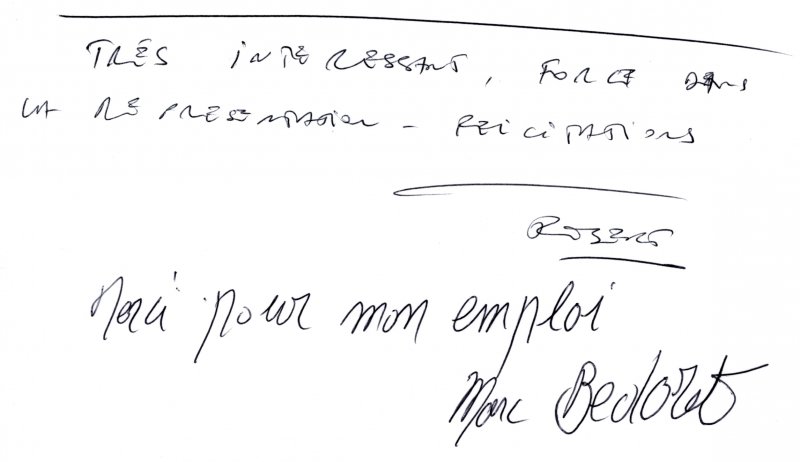 TRÈS INTERESSANT, FORCE DANS
LA REPRESENTATION - FELICITATIONS
ROBERT
Merci pour mon emploi
Marc Bedoret